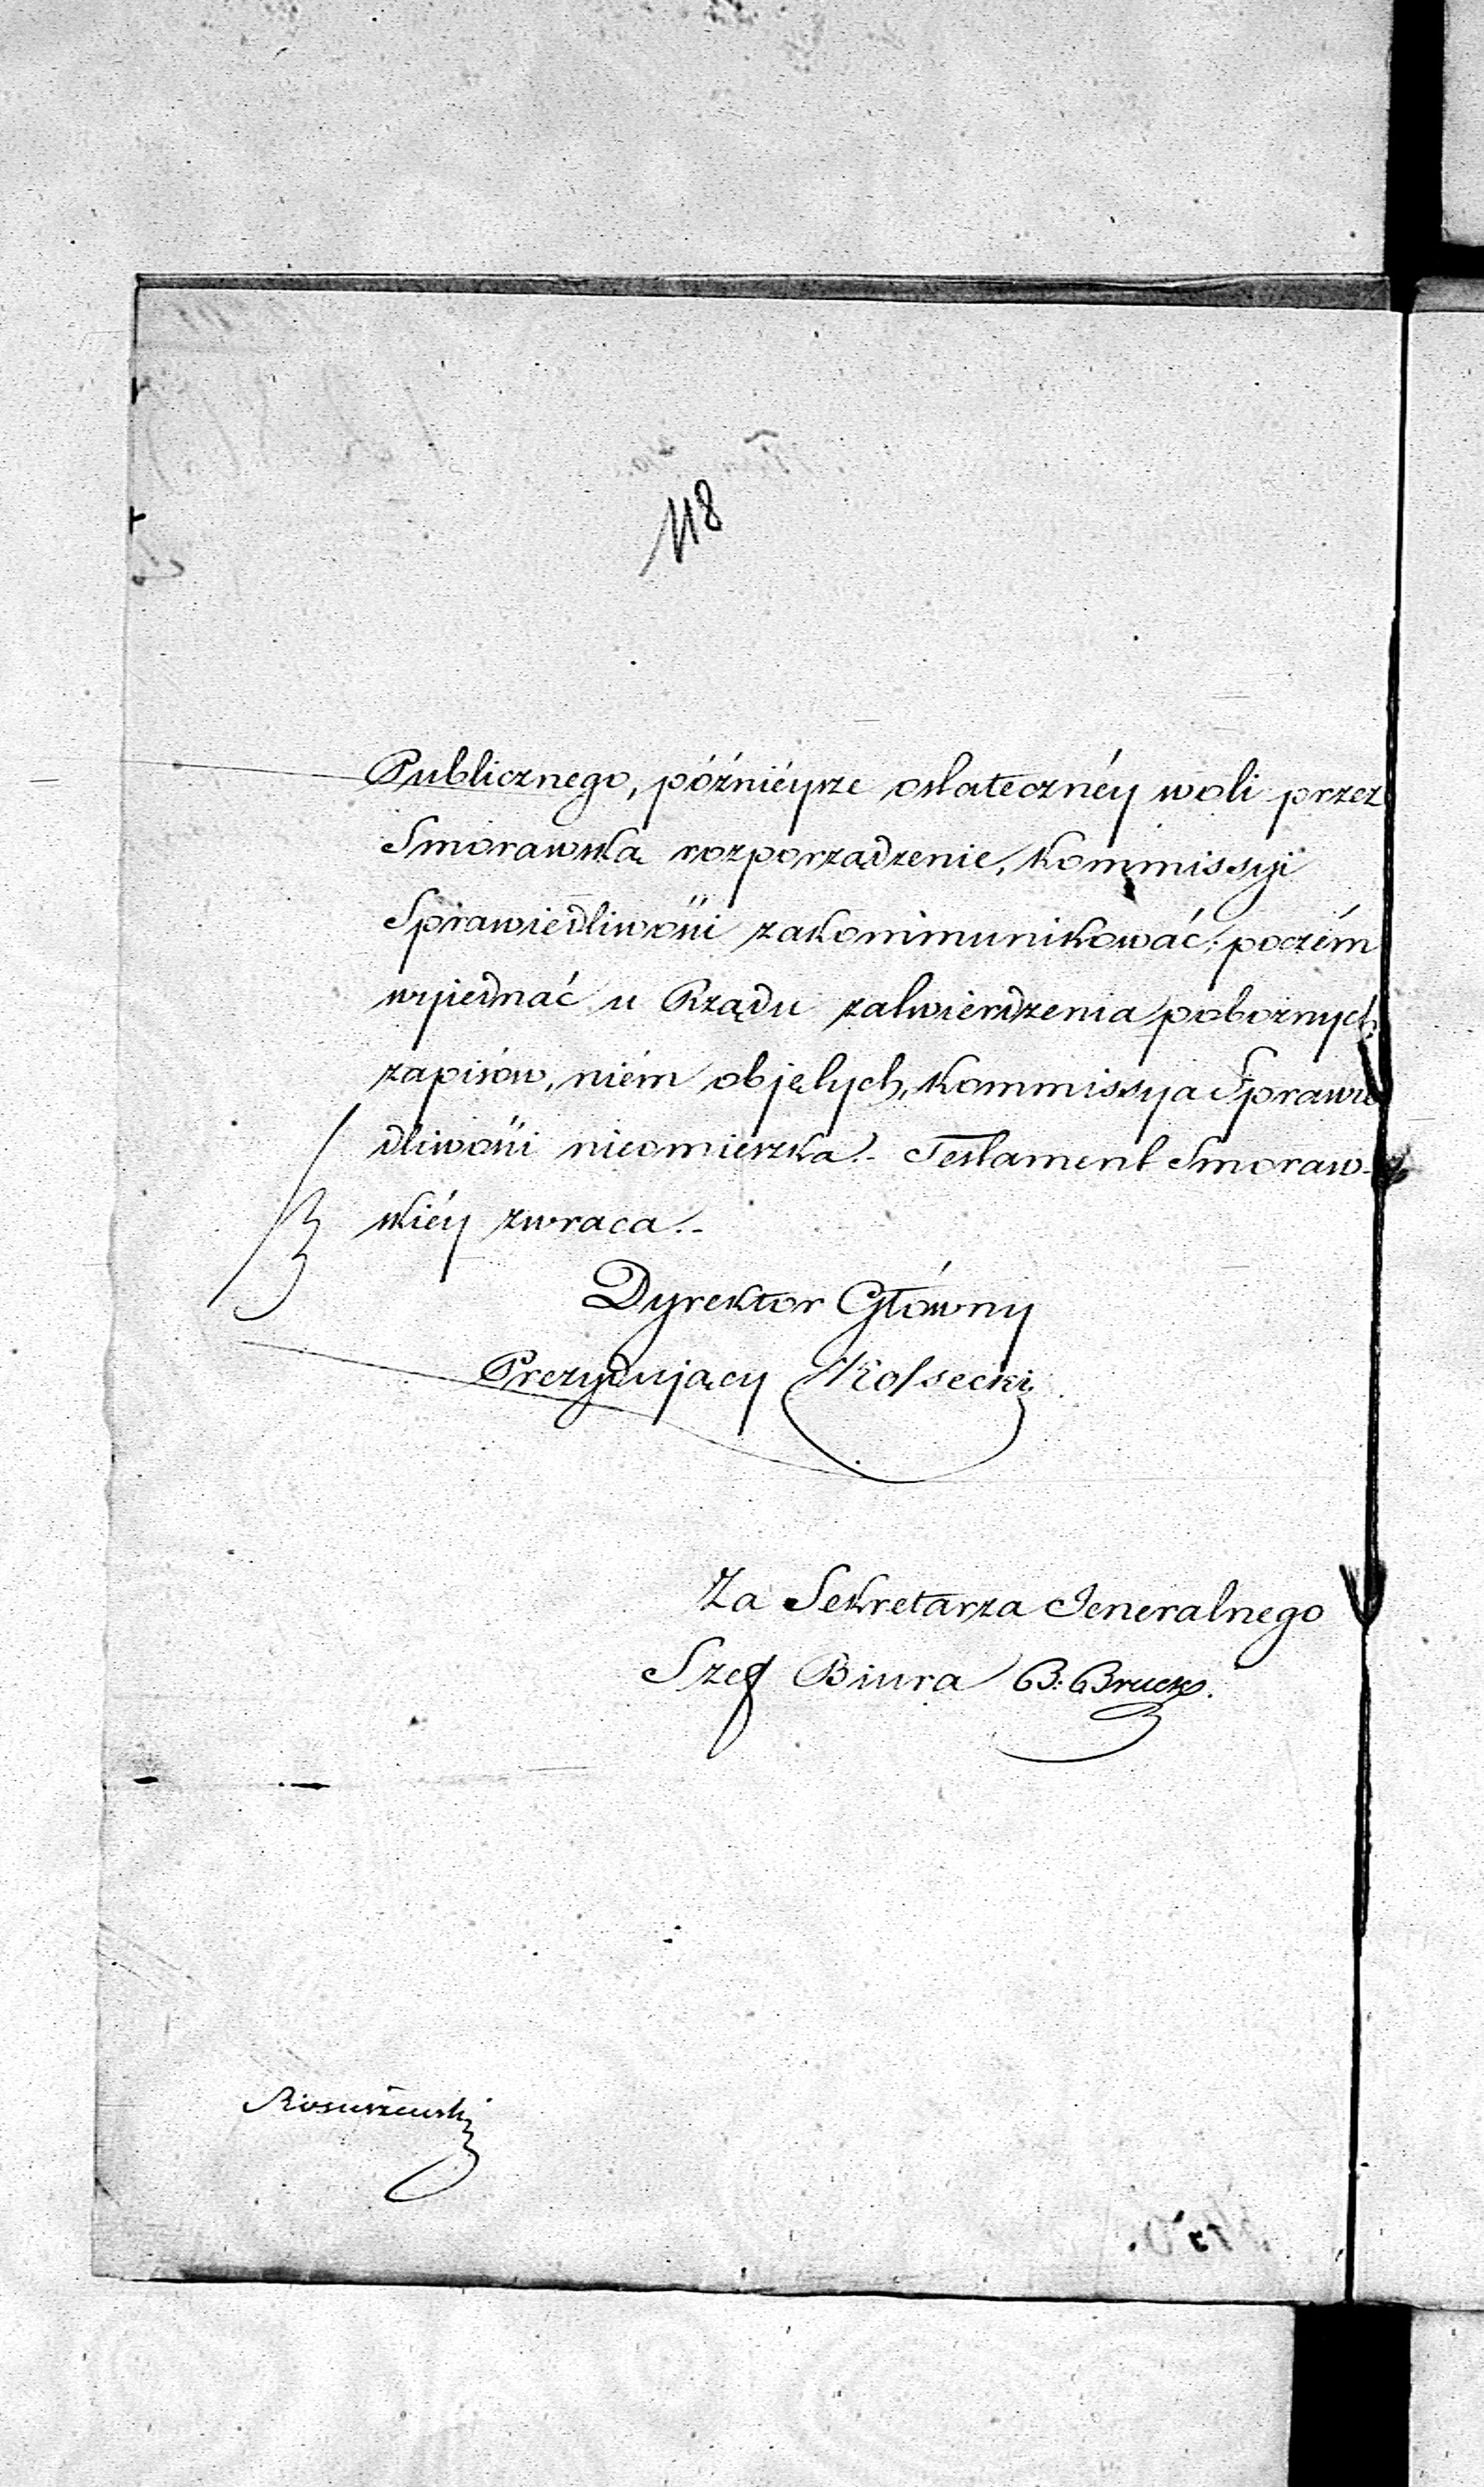 118
Publicznego, późniéysze ostatecznéy woli przez
Smorawską rozporządzenie, Kommissyi
Sprawiedliwości zakommunikować; poczém
wyiednać u Rządu zatwierdzenia pobożnych
zapisów, niém objętych, Kommissya Sprawie
dliwości nieomieszka.- Testament Smoraw-
skiéy zwraca.-
Dyrektor Główny
Prezydujący Kossecki
Za Sekretarza Jeneralnego
Szef Biura B: